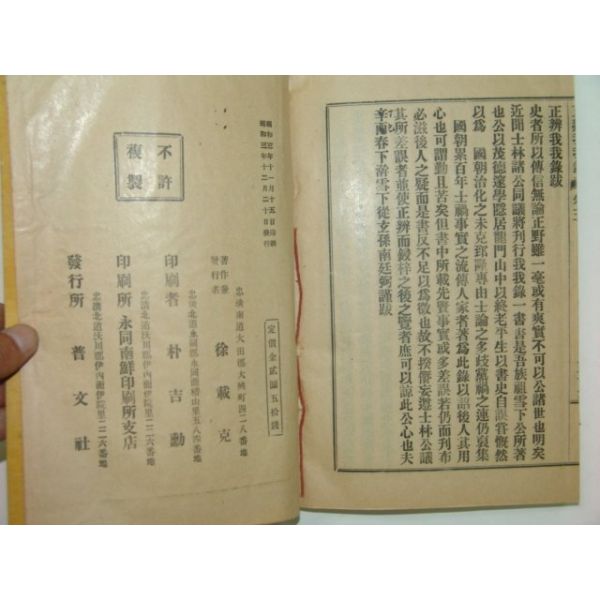 正辨我我錄跋
史者所以傳信無論正野雖一毫或有爽實不可以公諸世也明矣
近聞士林諸公同議將刋行我我錄一書書是吾族祖雪下公所著
也公以茂德邃學隱居龍門山中以終老平生以書史自誤嘗慨然
以爲 國朝治化之未克
專由士論之多歧黨禍之連仍裒集
國朝累百年士禍事實之流傳人家者著爲此錄以詔後人其用
心也可謂勤且苦矣但書中所載先賢事實或多差誤若仍而刋布
必滋後人之疑而是書反不足以爲徵也故不揆僭妄遵士林公議
其所差誤者並使正辨而鋟梓之後之覽者庶可以諒此公心也夫
辛
春下
雪下從玄孫南廷
謹跋
定價金貳圓五拾錢
忠淸南道大田郡大興町四二八番地
著作兼
發行者
徐載克
忠淸北道永同郡永同面稽山里五八四番地
印刷者 朴吉勳
印刷所 永同南鮮印刷所支店
忠淸北道沃川郡伊內面伊院里一二六番地
發行所 普文社
昭和三年十一月十五日印刷
昭和三年十二月二十日發行
不許
複製